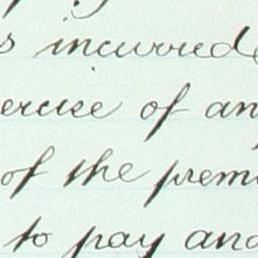 s incurred
ercise of an
of the prem
to pay and